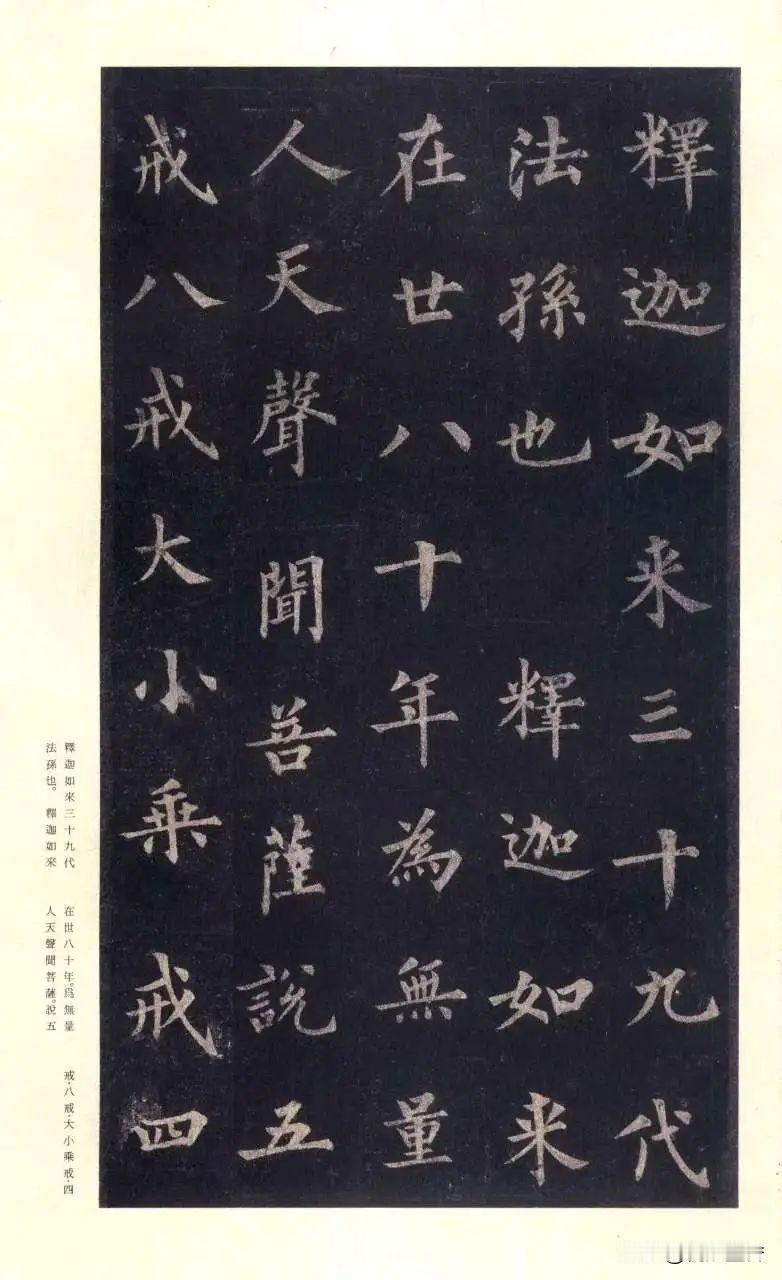 釋迦如来三十九代
法孫也 釋迦如来
在世八十年為無量
人天聲聞菩薩說五
戒八戒大小乘戒四
釋迦如來三十九代
法孫也。釋迦如來
在世八十年。爲無量
人天聲聞菩薩。說五
戒·八戒·大小乘戒·四